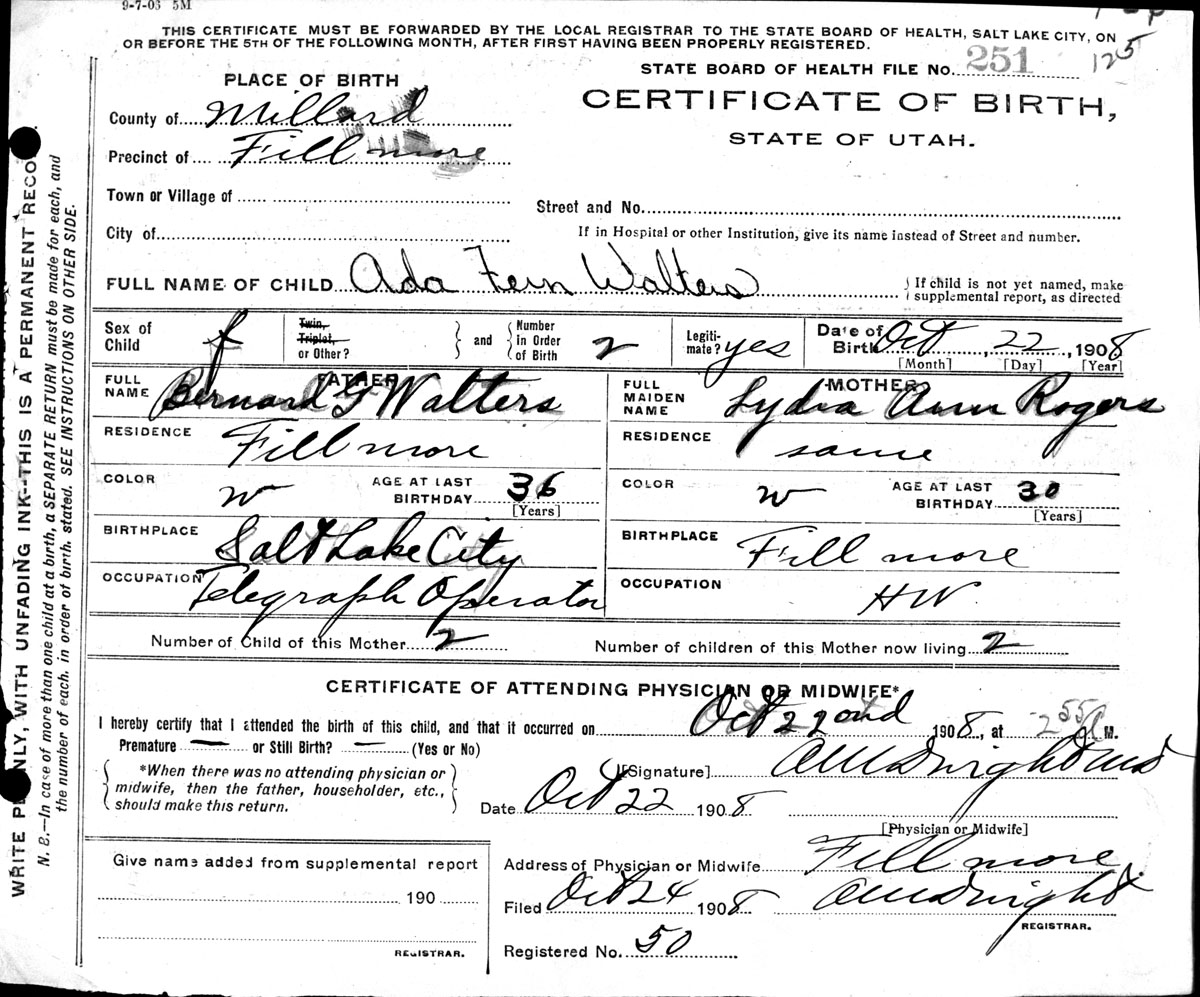 9-7-06 5M
THIS CERTIFICATE MUST BE FORWARDED BY THE LOCAL REGISTRAR TO THE STATE BOARD OF HEALTH, SALT LAKE CITY, ON
OR BEFORE THE 5TH OF THE FOLLOWING MONTH, AFTER FIRST HAVING BEEN PROPERLY REGISTERED.
125
STATE BOARD OF HEALTH FILE No. 251
PLACE OF BIRTH
CERTIFICATE OF BIRTH,
STATE OF UTAH.
County of Millard
Precinct of Fillmore
Town or Village of
Street and No.
City of
If in Hospital or other Institution, give its name instead of Street and number.
FULL NAME OF CHILD Ada Fern Walters
If child is not yet named, make
supplemental report, as directed
Sex of Child f
Twin, Triplet, or Other?
and Number in Order of Birth 2
Legitimate? yes
Date of Birth Oct 22, 1908
[Month] [Day] [Year]
FATHER
FULL NAME Bernard G Walters
RESIDENCE Fillmore
COLOR W AGE AT LAST BIRTHDAY 36
[Years]
BIRTHPLACE Salt Lake City
OCCUPATION Telegraph Operator
MOTHER
FULL MAIDEN NAME Lydia Ann Rogers
RESIDENCE same
COLOR W AGE AT LAST BIRTHDAY 30
[Years]
BIRTHPLACE Fillmore
OCCUPATION HW
Number of Child of this Mother 2 Number of children of this Mother now living 2
CERTIFICATE OF ATTENDING PHYSICIAN OR MIDWIFE*
I hereby certify that I attended the birth of this child, and that it occurred on Oct 22nd 1908, at 2 55 M.
Premature — or Still Birth? — (Yes or No)
*When there was no attending physician or
midwife, then the father, householder, etc.,
should make this return.
[Signature] Dwight MD
Date Oct 22 1908
[Physician or Midwife]
Give name added from supplemental report
190
REGISTRAR.
Address of Physician or Midwife Fillmore
Filed Oct 24 1908 Dwight
REGISTRAR.
Registered No. 50
WRITE PLAINLY, WITH UNFADING INK--THIS IS A PERMANENT RECO
N. B.—In case of more than one child at a birth, a SEPARATE RETURN must be made for each, and
the number of each, in order of birth, stated. SEE INSTRUCTIONS ON OTHER SIDE.